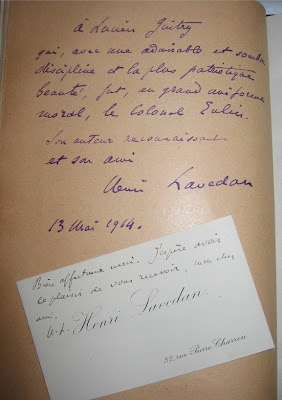 à Lucien Guitry
qui, avec une admirable et sombre
discipline et la plus patriotique
beauté, fut, en grand uniforme
moral, le Colonel Eulin.
Son auteur reconnaissant
et son ami
Henri Lavedan
13 Mai 1914.
Bien affectueux merci. J'espère avoir
le plaisir de vous recevoir, mon cher
ami.
Henri Lavedan
52, rue Pierre Charron